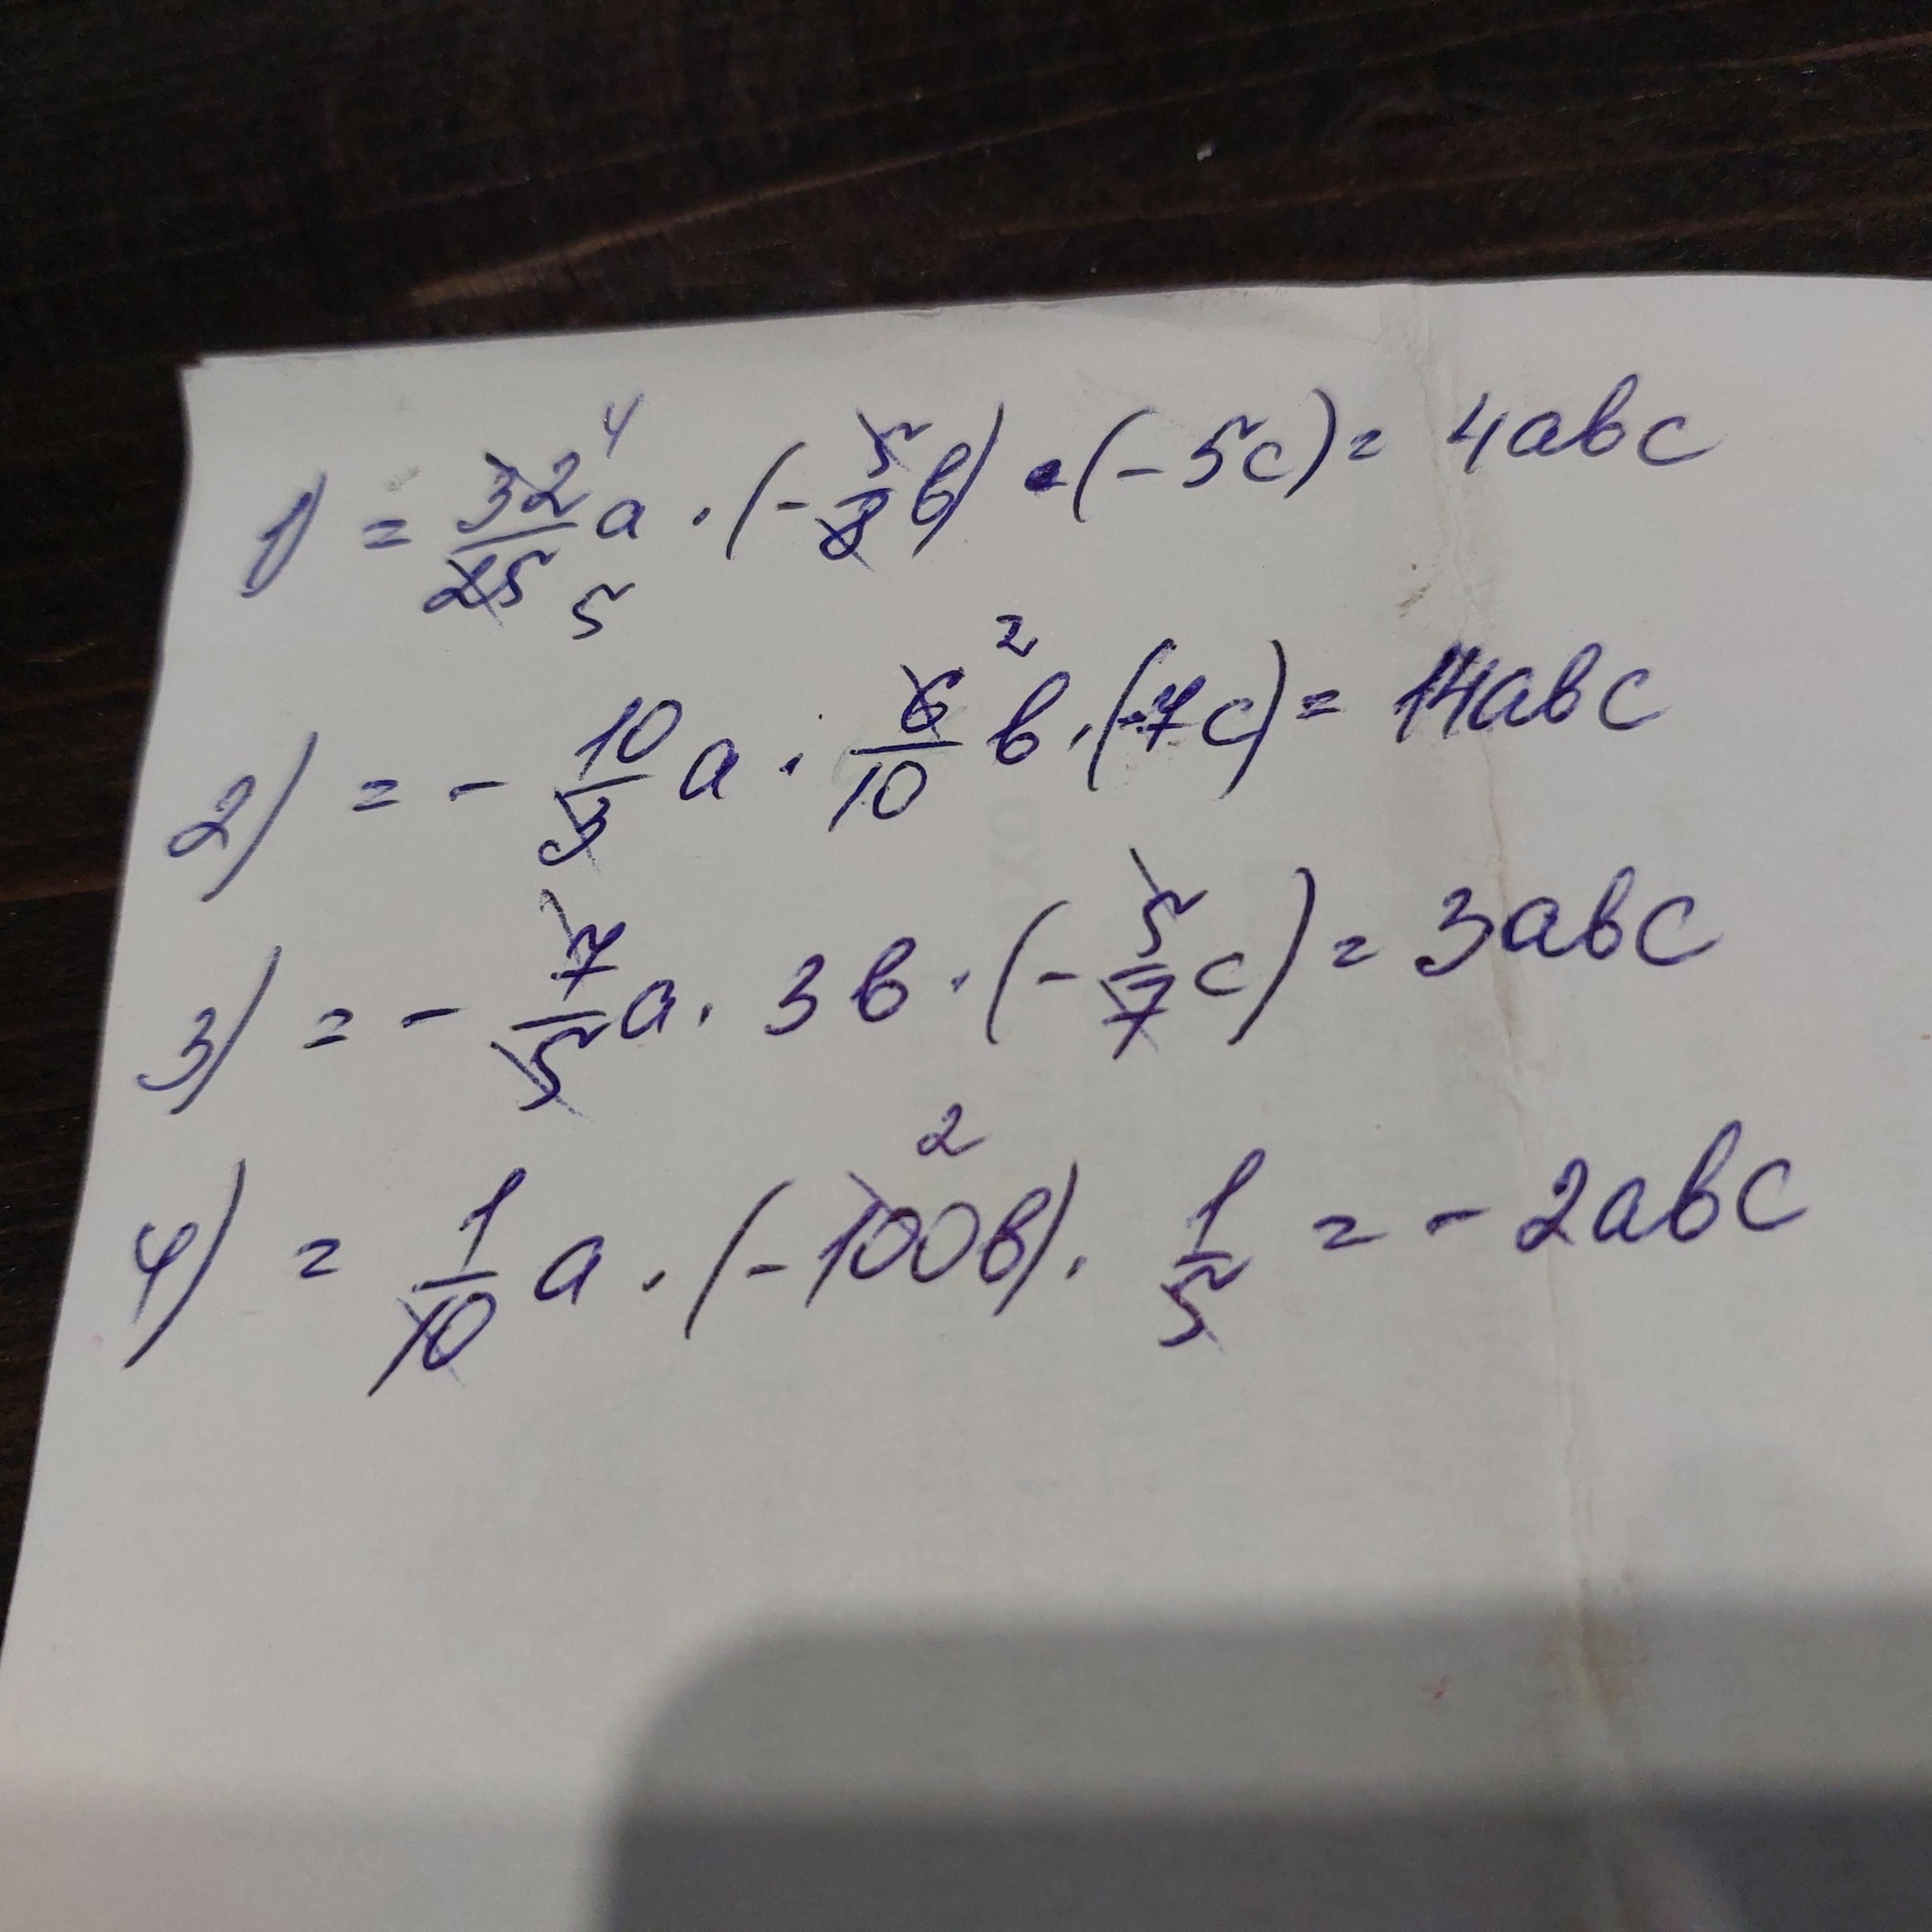 1) = 32/25 4 5 a · (- 5/8 b) · (- 5c) = 4abc
2) = - 10/3 a · 6/10 2 b · (-7c) = 14abc
3) = - 7/5 a · 3b · (- 5/7 c) = 3abc
4) = 1/10 a · (- 100b) 2 · 1/5 = - 2abc